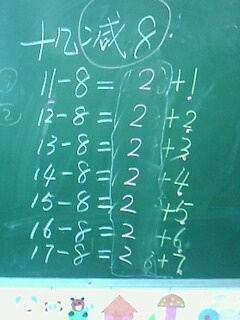 十几减8
11-8=2+1
12-8=2+2
13-8=2+3
14-8=2+4
15-8=2+5
16-8=2+6
17-8=2+7